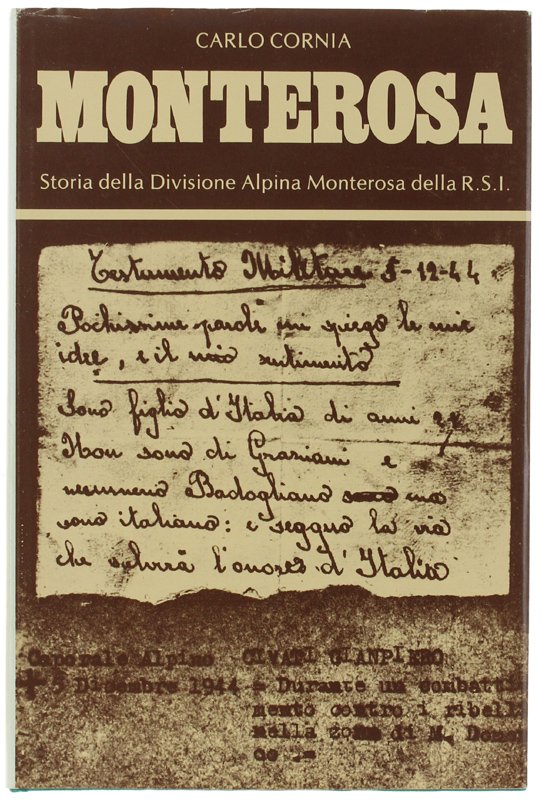 CARLO CORNIA
MONTEROSA
Storia della Divisione Alpina Monterosa della R.S.I.
Testamento Militare 5-12-44
Pochissime parole mi spiego le mie
idee, e il mio sentimento
Sono figlio d'Italia di anni 22
Non sono di Graziani e
nemmeno Badogliano ma
sono italiano: e seguo la via
che salverà l'onore d'Italia
Caporale Alpino CIVATI GIANPIERO
5 Dicembre 1944 = Durante un combatti
mento contro i ribell
nella zona di M. Dome
co .=